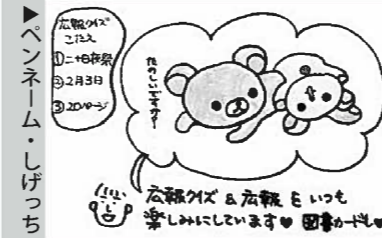 ▶ペンネーム・しげっち
広報クイズ
こたえ
①二十日夜祭
②2月3日
③20ページ
たのしいですか?
広報クイズ&広報をいつも
楽しみにしています♥ 図書カードも♥